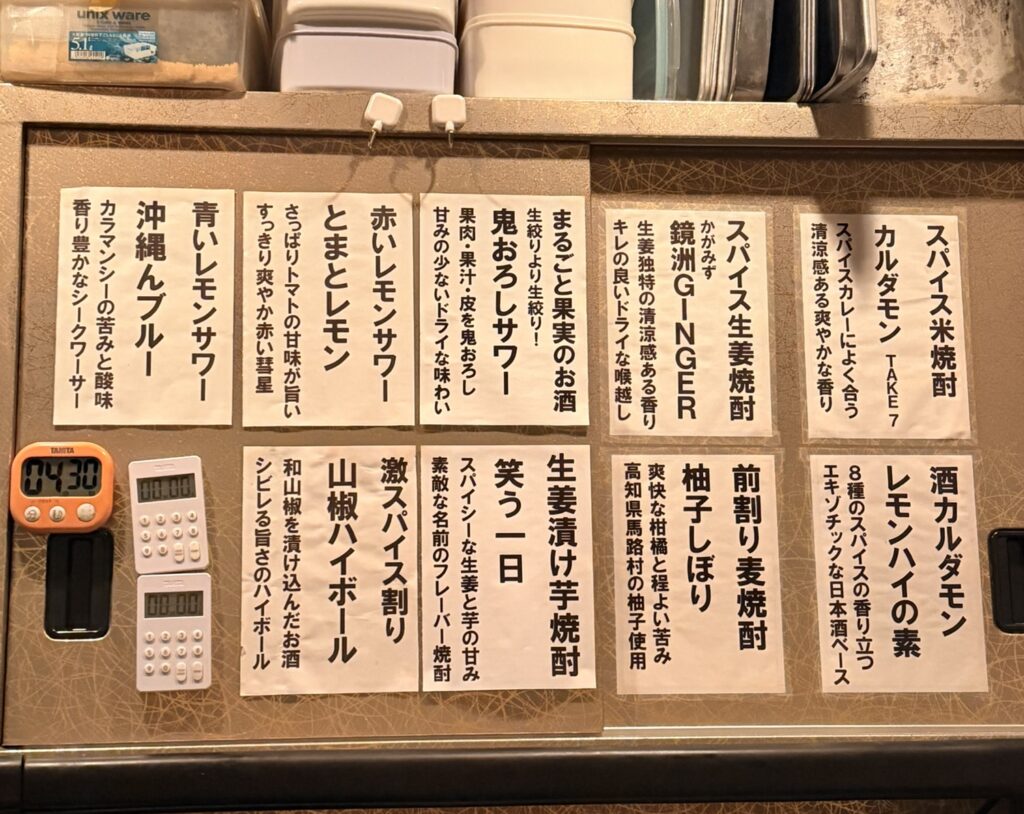 unix ware
5.1ℓ
スパイス米焼酎
カルダモン TAKE 7
スパイスカレーによく合う
清涼感ある爽やかな香り
スパイス生姜焼酎
かがみず
鏡洲GINGER
生姜独特の清涼感ある香り
キレの良いドライな喉越し
まるごと果実のお酒
生絞りより生絞り！
鬼おろしサワー
果肉・果汁・皮を鬼おろし
甘みの少ないドライな味わい
赤いレモンサワー
とまとレモン
さっぱりトマトの甘味が旨い
すっきり爽やか赤い彗星
青いレモンサワー
沖縄んブルー
カラマンシーの苦みと酸味
香り豊かなシークワーサー
酒カルダモン
レモンハイの素
8種のスパイスの香り立つ
エキゾチックな日本酒ベース
前割り麦焼酎
柚子しぼり
爽快な柑橘と程よい苦み
高知県馬路村の柚子使用
生姜漬け芋焼酎
笑う一日
スパイシーな生姜と芋の甘み
素敵な名前のフレーバー焼酎
激スパイス割り
山椒ハイボール
和山椒を漬け込んだお酒
シビレる旨さのハイボール
TANITA
04:30
00:00
00:00